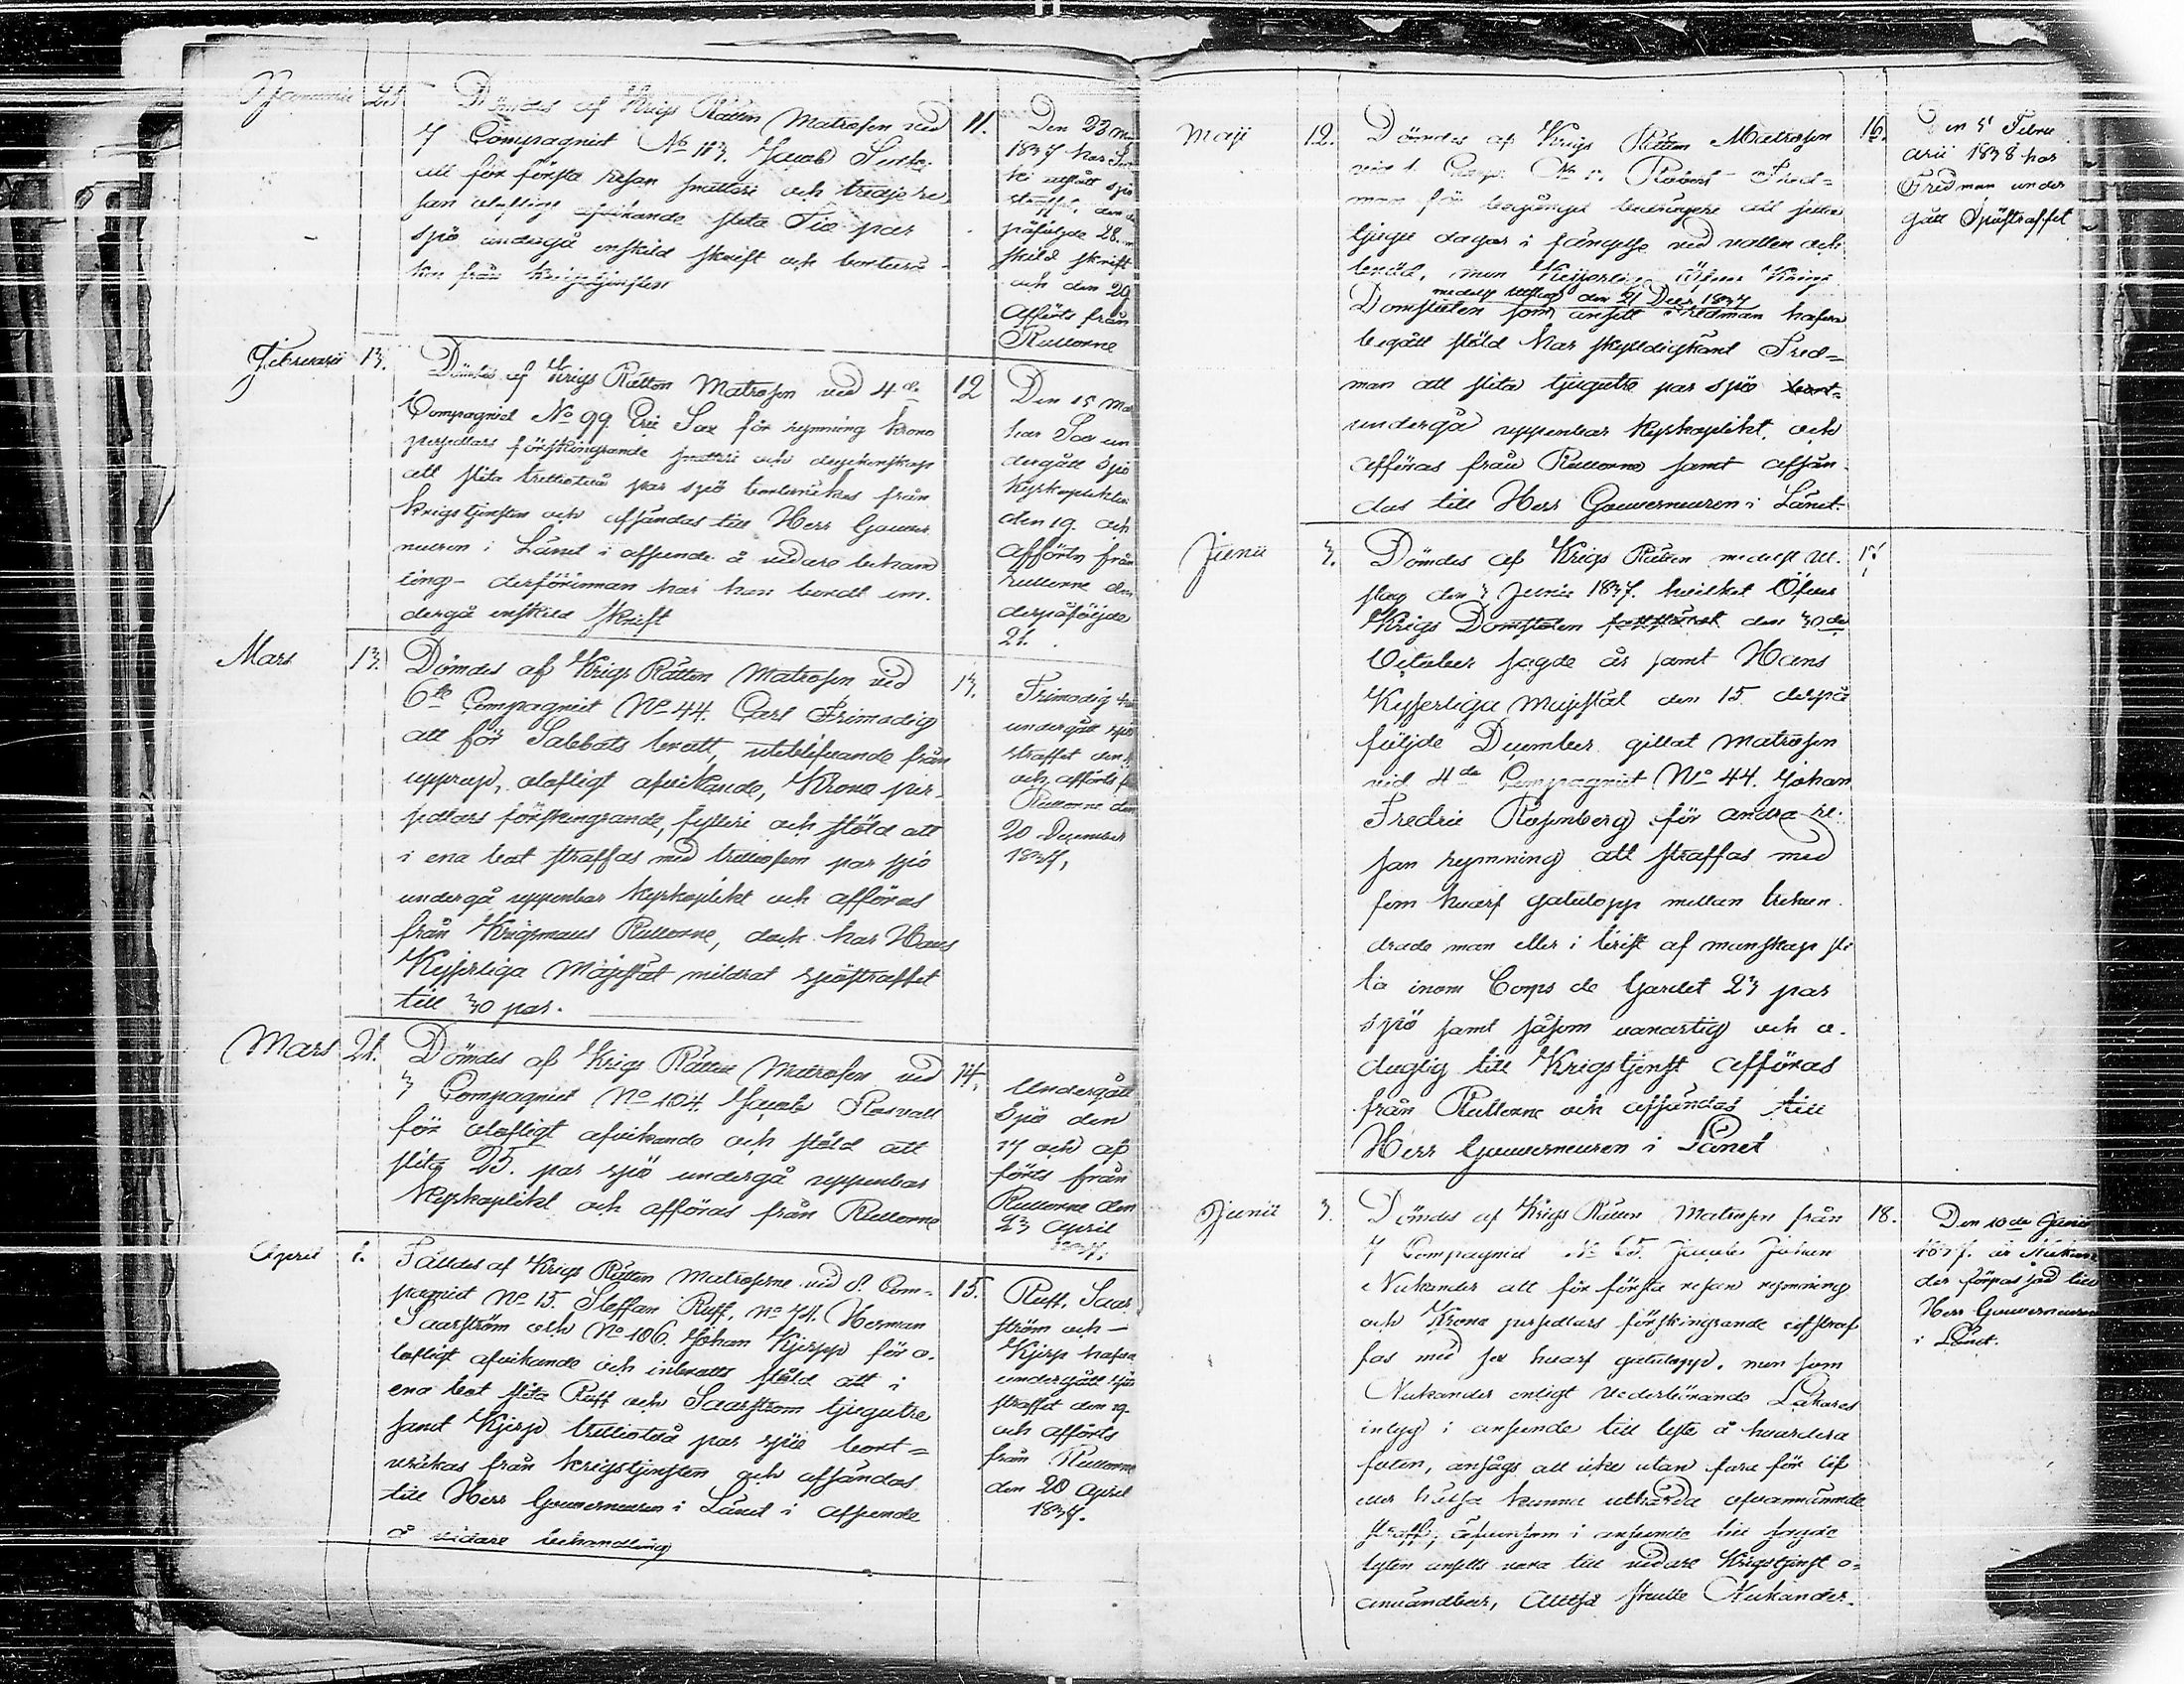 Januarii 25. Dömdes af Krigs Rätten Matrosen ved 11.
7 Compagniet No 113. Jacob
att för första resan snatteri och tredje re
san olofligt afvikande slita Tio par
spö undergå enskild skrift och bortvrä-
kas från krigstjensten
Den 23
1837 har
undergått spö
straffet, den
påfölgde 28.
skild skrift
och den 29
Afförts från
Rullorne
Februarii 13. Dömdes af Krigs Rätten Matrosen ved 4de 12
Compagniet No 99 Eric Sax för rymning krono
persedlars förskingrande snatteri och
att slita trettiotvå par spö bortvräkas från
krigstjensten och afsändas till Herr Gouver
neuren i Länet i afseende å vidare behand
ling - derförinnan har han bordt un-
dergå enskild skrift
Den 15
har Sax un
dergått Spö
Kyrkoplikten
den 19. och
Afförts från
rullorne den
derpåföljde
21.
Mars 13. Dömdes af Krigs Rätten Matrosen ved 13.
6te Compagniet No 44. Carl Frimodig
att för Sabbats brott, uteblifvande från
upprop, olofligt afvikande, Krono per-
sedlars förskingrande, fylleri och stöld att
i ena bot straffas med trettiofem par spö
undergå uppenbar kyrkoplikt och afföras
från Krigsmans Rullorne, dock har Hans
Kejserliga Majestät mildrat spöstraffet
till 30 par.
Frimodig
undergått spö
straffet den
och afförts
Rullorne den
20 December
1837,
Mars 21. Dömdes af Krigs Rätten Matrosen ved 14,
3 Compagniet No 104. Jacob Rosvall
för olofligt afvikande och stöld att
slita 25. par spö undergå uppenbar
Kyrkoplikt och afföras från Rullorne
Undergått
Spö den
17 och af
förts från
Rullorne den
23 April
1837.
April 1. Fälldes af Krigs Rätten Matroserne ved 8. Com- 15.
pagniet No 15. Steffan Ruff, No 74. Herman
Saarström och No 106. Johan Kjerpp för o-
lofligt afvikande och inbrotts stöld att i
ena bot slita Ruff och Saarström tjugutre
samt Kjerp trettiotvå par spö bort-
vräkas från krigstjensten och afsändas
till Herr Gouverneuren i Länet i afseende
å vidare behandling
Ruff, Saar
ström och
Kjerp hafva
undergått spö
straffet den 19
och afförts
från Rullorne
den 20 April
1837.
Maji 12. Dömdes af Krigs Rätten Matrosen 16.
vid 1. Comp. No Robert Fred-
man för begånget bedrägeri att sitta
tjugu dagar i fängelse ved vatten och
bröd, men Kejserliga Öfver Krigs
medelst Utslag den 21 Decr. 1837
Domstolen som ansett Fredman hafva
begått stöld har skyldigkänt Fred-
man att slita tjugutre par spö
undergå uppenbar kyrkoplikt, och
afföras från Rullorne samt afsän-
das till Herr Gouverneuren i Länet.
Den 5 Febru
arii 1838 har
Fredman under
gått Spöstraffet
Junii 3. Dömdes af Krigs Rätten medelst Ut- 17.
slag den 3 Junii 1837. hvilket Öfver
Krigs Domstolen fastställt den 30de
October sagde år samt Hans
Kejserliga Majestät den 15 derpå
följde December gillat Matrosen
vid 4de Compagniet No 44. Johan
Fredric Rosenberg för andra re-
san rymning att straffas med
fem hvarf gatulopp mellan trehun-
drade man eller i brist af manskap sli
ta inom Corps de Gardet 23 par
spö samt såsom vanartig och o-
duglig till Krigstjenst afföras
från Rullorne och afsändas till
Herr Gouverneuren i Länet
Junii 3. Dömdes af Krigs Rätten Matrosen från 18.
7 Compagniet No 65. Jacob Johan
Nukander att för första resan rymning
och Krono persedlars förskingrande afstraf
fas med sex hvarf gatulopp, men som
Nukander enligt vederbörande Läkares
intyg i anseende till lyte å hvardera
foten, ansågs att icke utan fara för lif
eller hälsa kunna uthärda ofvannämnde
straff, äfvensom i anseende till sagde
lyten ansetts vara till vidare Krigstjenst o-
användbar, Alltså skulle Nukander.
Den 10de Junii
1837. är Nukan
der förpassad till
Herr Gouverneuren
i Länet.